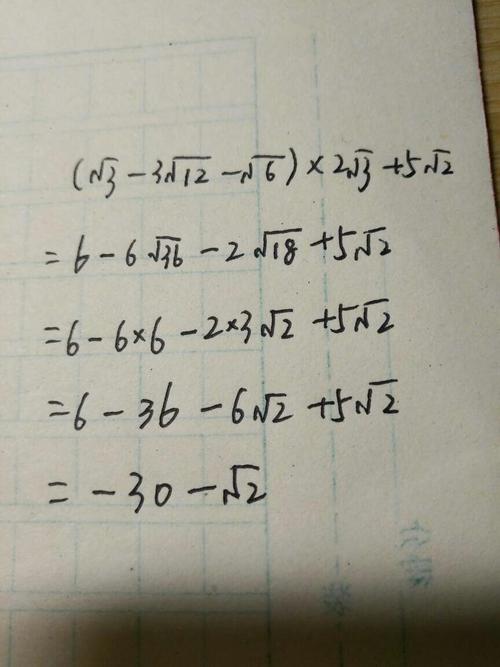 (√3 - 3√12 - √6) × 2√3 + 5√2
= 6 - 6√36 - 2√18 + 5√2
= 6 - 6×6 - 2×3√2 + 5√2
= 6 - 36 - 6√2 + 5√2
= -30 - √2